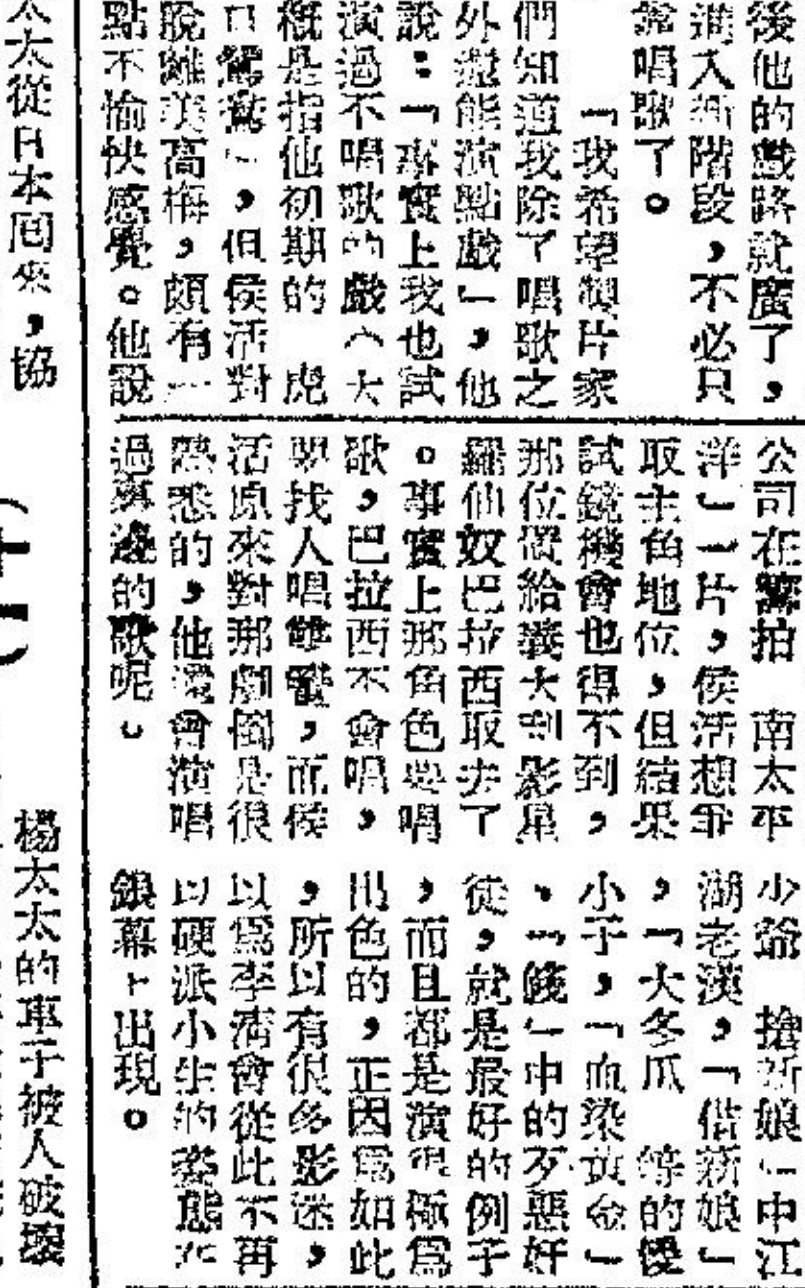 後他的戲路就廣了，
進入新階段，不必只
靠唱歌了。
「我希望製片家
們知道我除了唱歌之
外還能演點戲」，他
說：「事實上我也試
演過不唱歌的戲（大
概是指他初期的 虎
口鴛鴦」，但侯活對
脫離美高梅，頗有一
點不愉快感覺。他說
公司在籌拍 南太平
洋」一片，侯活想爭
取主角地位，但結果
試鏡機會也得不到，
那位置給義大利影星
羅仙奴巴拉西取去了
。事實上那角色要唱
歌，巴拉西不會唱，
要找人唱雙簧，而侯
活原來對那劇倒是很
熟悉的，他還會演唱
過裏邊的歌呢。
少爺 搶新娘」中江
湖老漢，「借新娘」
，「大冬瓜 等的傻
小子，「血染黃金」
、「餞」中的歹惡奸
徒，就是最好的例子
，而且都是演得極為
出色的，正因為如此
，所以有很多影迷，
以為李清會從此不再
以硬派小生的姿態在
銀幕上出現。
太太從日本回來，協
楊太太的車子被人破壞